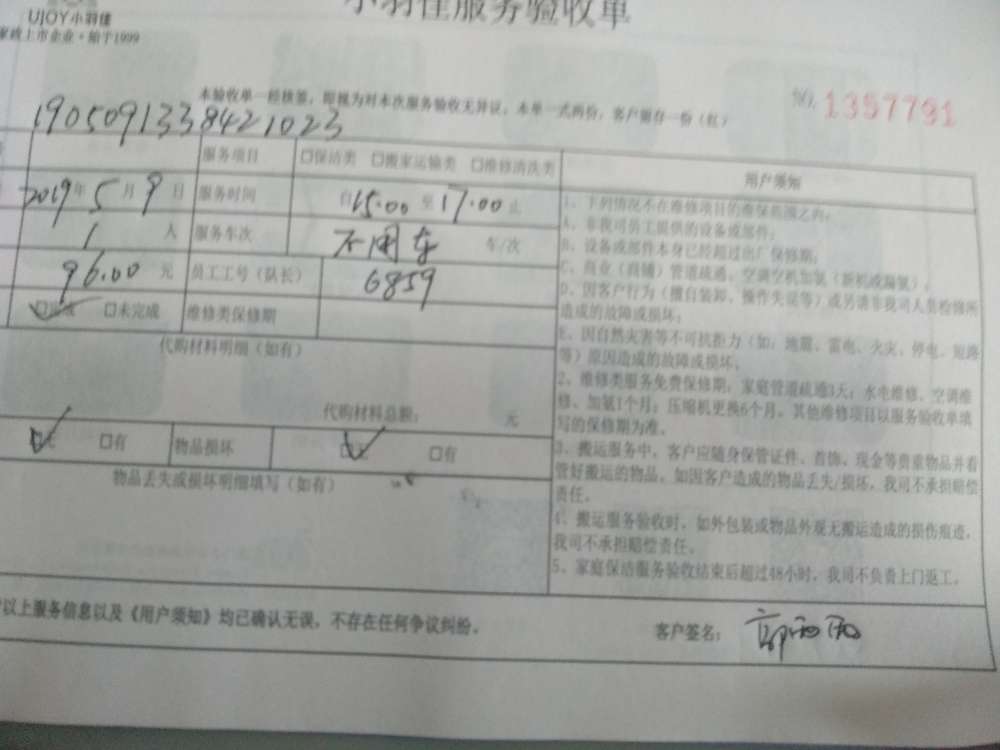 UJOY小羽佳
家政上市企业·始于1999
小羽佳服务验收单
本验收单一经核签，即视为对本次服务验收无异议，本单一式两份，客户留存一份（红）
NO. 1357791
1905091338421023
服务项目 □保洁类 □搬家运输类 □维修清洗类
2019年5月9日 服务时间 自15:00至17:00止
1人 服务车次 不用车 车/次
96.00元 员工工号（队长） 6859
□完成 □未完成 维修类保修期
代购材料明细（如有）
代购材料总额： 元
□无 □有 物品损坏 □无 □有
物品丢失或损坏明细填写（如有）
用户须知
1、下列情况不在维修项目的维保范围之内：
A、非我司员工提供的设备或部件；
B、设备或部件本身已经超过出厂保修期；
C、商业（商铺）管道疏通、空调空机加氨（新机或漏氨）；
D、因客户行为（擅自装卸、操作失误等）或另请非我司人员检修所
造成的故障或损坏；
E、因自然灾害等不可抗拒力（如：地震、雷电、火灾、停电、短路
等）原因造成的故障或损坏。
2、维修类服务免费保修期，家庭管道疏通3天；水电维修、空调维
修、加氨1个月；压缩机更换6个月。其他维修项目以服务验收单填
写的保修期为准。
3、搬运服务中，客户应随身保管证件、首饰、现金等贵重物品并看
管好搬运的物品。如因客户造成的物品丢失/损坏，我司不承担赔偿
责任。
4、搬运服务验收时，如外包装或物品外观无搬运造成的损伤痕迹，
我司不承担赔偿责任。
5、家庭保洁服务验收结束后超过48小时，我司不负责上门返工。
以上服务信息以及《用户须知》均已确认无误，不存在任何争议纠纷。
客户签名：